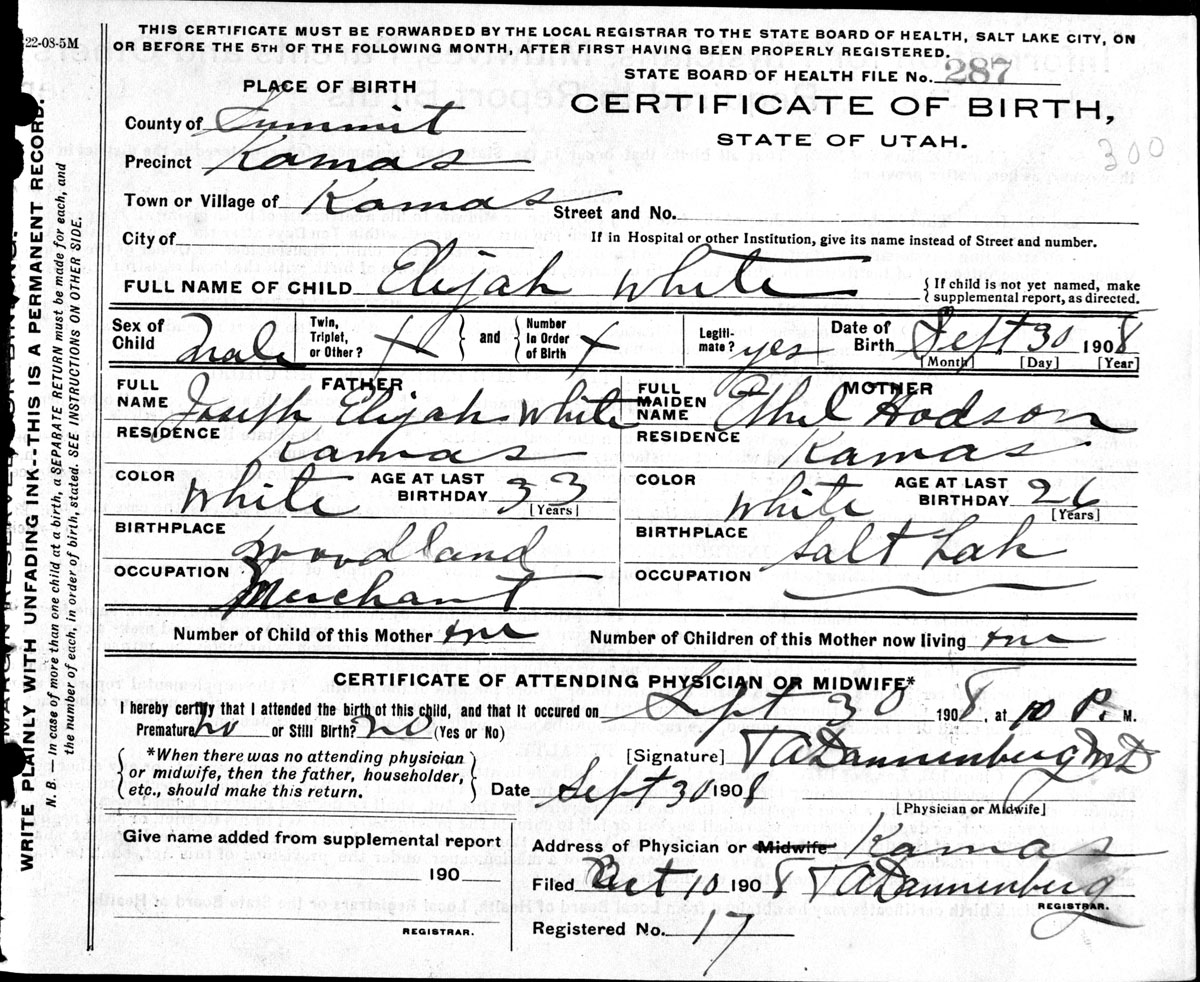 22-08-5M
THIS CERTIFICATE MUST BE FORWARDED BY THE LOCAL REGISTRAR TO THE STATE BOARD OF HEALTH, SALT LAKE CITY, ON
OR BEFORE THE 5TH OF THE FOLLOWING MONTH, AFTER FIRST HAVING BEEN PROPERLY REGISTERED.
STATE BOARD OF HEALTH FILE No. 287
PLACE OF BIRTH
CERTIFICATE OF BIRTH,
STATE OF UTAH.
300
County of Summit
Precinct Kamas
Town or Village of Kamas
Street and No.
City of
If in Hospital or other Institution, give its name instead of Street and number.
FULL NAME OF CHILD Elijah White
{ If child is not yet named, make
supplemental report, as directed.
Sex of Child Male
Twin, Triplet, or Other? +
} and {
Number In Order of Birth +
Legiti- mate? yes
Date of Birth Sept 30 1908
[Month] [Day] [Year]
FATHER
FULL NAME Joseph Elijah White
RESIDENCE Kamas
COLOR White
AGE AT LAST BIRTHDAY 33
[Years]
BIRTHPLACE Woodland
OCCUPATION Merchant
MOTHER
FULL MAIDEN NAME Ethel Hodson
RESIDENCE Kamas
COLOR White
AGE AT LAST BIRTHDAY 26
[Years]
BIRTHPLACE Salt Lak
OCCUPATION
Number of Child of this Mother one
Number of Children of this Mother now living one
CERTIFICATE OF ATTENDING PHYSICIAN OR MIDWIFE*
I hereby certify that I attended the birth of this child, and that it occured on Sept 30 1908, at 10 P. M.
Premature no or Still Birth? no (Yes or No)
{ *When there was no attending physician
or midwife, then the father, householder,
etc., should make this return. }
[Signature] T A Dannenberg MD
Date Sept 30 1908
[Physician or Midwife]
Give name added from supplemental report
190
REGISTRAR.
Address of Physician or Midwife Kamas
Filed Oct 10 1908 T A Dannenberg
REGISTRAR.
Registered No. 17
MARGIN RESERVED FOR BINDING.
WRITE PLAINLY WITH UNFADING INK--THIS IS A PERMANENT RECORD.
N. B. In case of more than one child at a birth, a SEPARATE RETURN must be made for each, and
the number of each, in order of birth, stated. SEE INSTRUCTIONS ON OTHER SIDE.